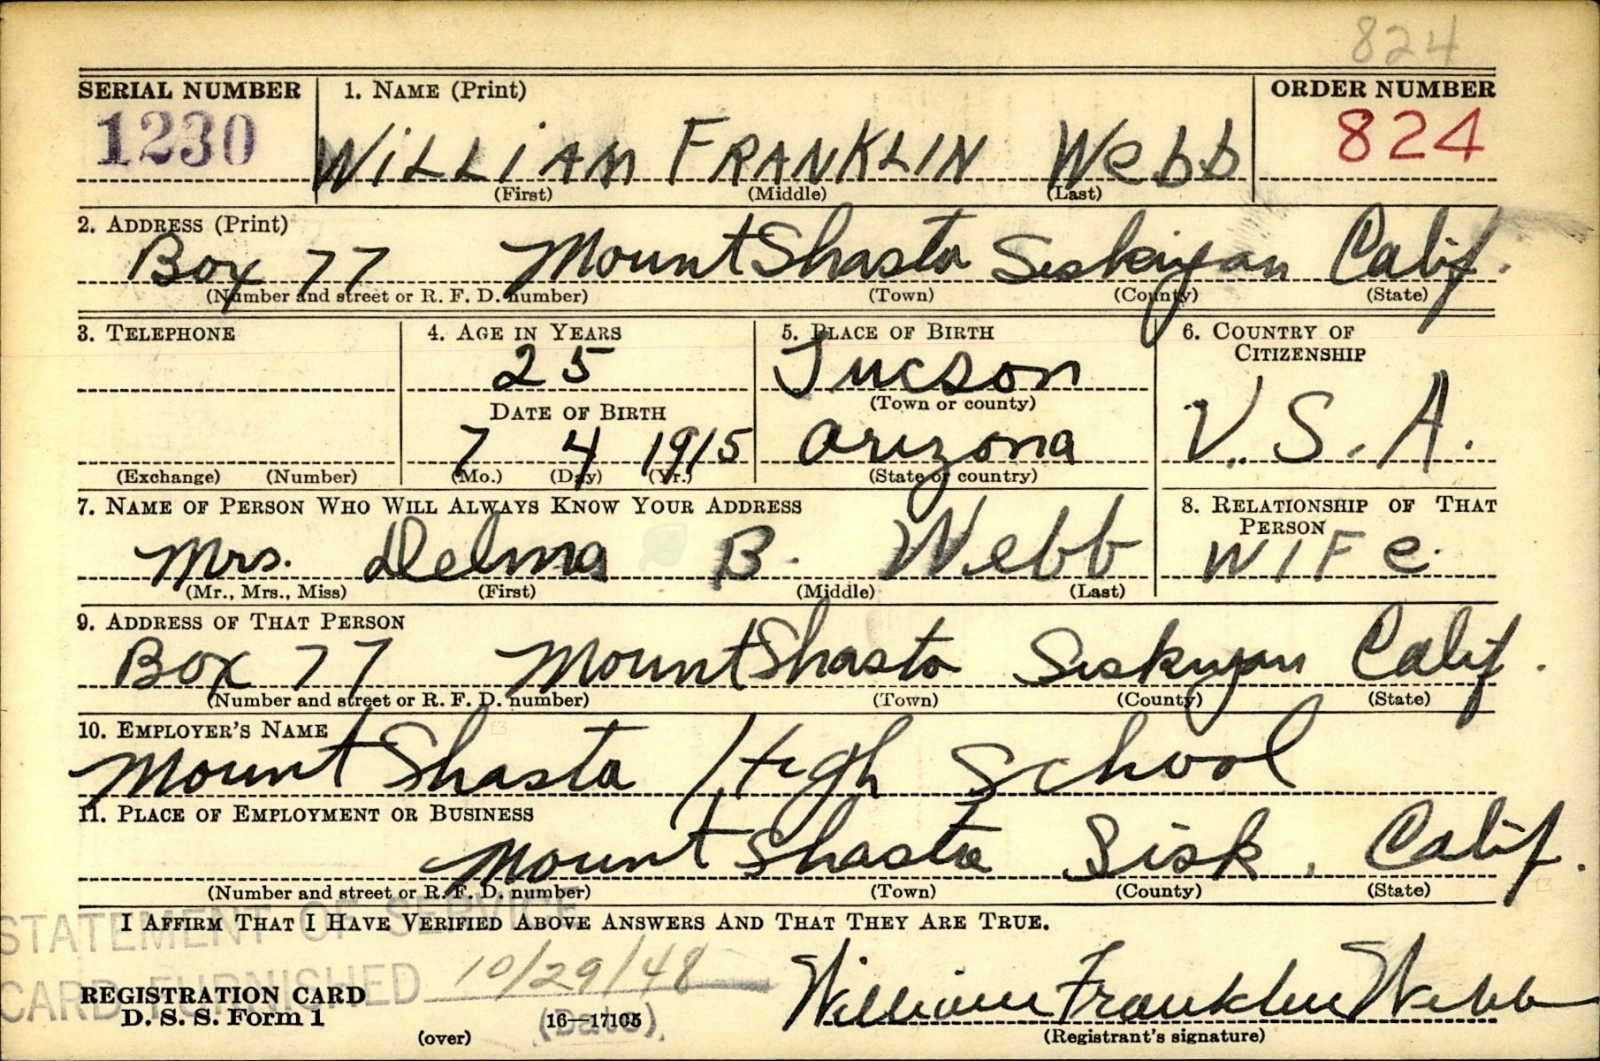 824
SERIAL NUMBER 1. NAME (Print) ORDER NUMBER
1230 WiLLiAM FRANKLIN Webb 824
(First) (Middle) (Last)
2. ADDRESS (Print)
Box 77 Mount Shasta Siskiyou Calif.
(Number and street or R. F. D. number) (Town) (County) (State)
3. TELEPHONE 4. AGE IN YEARS 5. PLACE OF BIRTH 6. COUNTRY OF
CITIZENSHIP
25 Tucson
(Town or county)
DATE OF BIRTH
7 4 1915 Arizona U.S.A.
(Exchange) (Number) (Mo.) (Day) (Yr.) (State or country)
7. NAME OF PERSON WHO WILL ALWAYS KNOW YOUR ADDRESS 8. RELATIONSHIP OF THAT
PERSON
Mrs. Delma B. Webb WIFe.
(Mr., Mrs., Miss) (First) (Middle) (Last)
9. ADDRESS OF THAT PERSON
Box 77 Mount Shasta Siskiyou Calif.
(Number and street or R. F. D. number) (Town) (County) (State)
10. EMPLOYER'S NAME
Mount Shasta High School
11. PLACE OF EMPLOYMENT OR BUSINESS
Mount Shasta Sisk. Calif.
(Number and street or R. F. D. number) (Town) (County) (State)
STATEMENT OF SERVICE
I AFFIRM THAT I HAVE VERIFIED ABOVE ANSWERS AND THAT THEY ARE TRUE.
CARD FURNISHED 10/29/48
REGISTRATION CARD William Franklin Webb
D. S. S. Form 1 16—17105 (Date)
(over) (Registrant's signature)